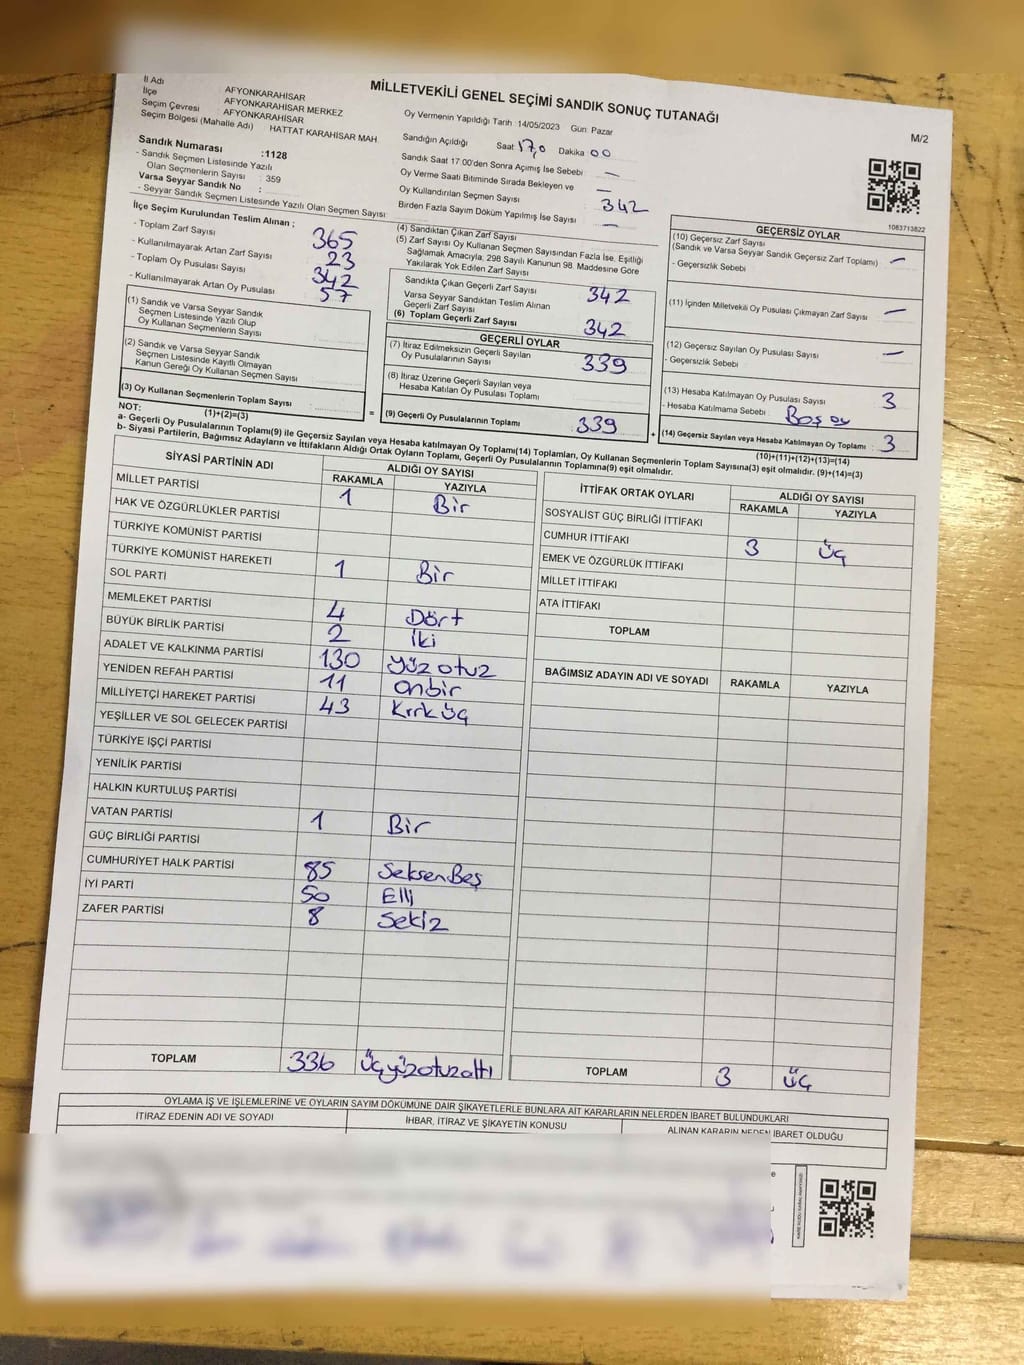 MİLLETVEKİLİ GENEL SEÇİMİ SANDIK SONUÇ TUTANAĞI
M/2
İl Adı AFYONKARAHİSAR
İlçe AFYONKARAHİSAR MERKEZ
Seçim Çevresi AFYONKARAHİSAR
Seçim Bölgesi (Mahalle Adı) HATTAT KARAHİSAR MAH.
Sandık Numarası :1128
- Sandık Seçmen Listesinde Yazılı
Olan Seçmenlerin Sayısı : 359
Varsa Seyyar Sandık No :
- Seyyar Sandık Seçmen Listesinde Yazılı Olan Seçmen Sayısı:
Oy Vermenin Yapıldığı Tarih :14/05/2023 Gün: Pazar
Sandığın Açıldığı Saat 17,0 Dakika 00
Sandık Saat 17:00'den Sonra Açılmış İse Sebebi —
Oy Verme Saati Bitiminde Sırada Bekleyen ve —
Oy Kullandırılan Seçmen Sayısı 342
Birden Fazla Sayım Döküm Yapılmış İse Sayısı —
1083713822
İlçe Seçim Kurulundan Teslim Alınan ;
- Toplam Zarf Sayısı 365
- Kullanılmayarak Artan Zarf Sayısı 23
- Toplam Oy Pusulası Sayısı 342
- Kullanılmayarak Artan Oy Pusulası 57
(1) Sandık ve Varsa Seyyar Sandık
Seçmen Listesinde Yazılı Olup
Oy Kullanan Seçmenlerin Sayısı
(2) Sandık ve Varsa Seyyar Sandık
Seçmen Listesinde Kayıtlı Olmayan
Kanun Gereği Oy Kullanan Seçmen Sayısı
(3) Oy Kullanan Seçmenlerin Toplam Sayısı
(1)+(2)=(3)
(4) Sandıktan Çıkan Zarf Sayısı
(5) Zarf Sayısı Oy Kullanan Seçmen Sayısından Fazla İse, Eşitliği
Sağlamak Amacıyla, 298 Sayılı Kanunun 98. Maddesine Göre
Yakılarak Yok Edilen Zarf Sayısı
Sandıkta Çıkan Geçerli Zarf Sayısı 342
Varsa Seyyar Sandıktan Teslim Alınan
Geçerli Zarf Sayısı
(6) Toplam Geçerli Zarf Sayısı 342
GEÇERLİ OYLAR
(7) İtiraz Edilmeksizin Geçerli Sayılan
Oy Pusulalarının Sayısı 339
(8) İtiraz Üzerine Geçerli Sayılan veya
Hesaba Katılan Oy Pusulası Toplamı
= (9) Geçerli Oy Pusulalarının Toplamı 339 +
GEÇERSİZ OYLAR
(10) Geçersiz Zarf Sayısı
(Sandık ve Varsa Seyyar Sandık Geçersiz Zarf Toplamı) —
- Geçersizlik Sebebi
(11) İçinden Milletvekili Oy Pusulası Çıkmayan Zarf Sayısı —
(12) Geçersiz Sayılan Oy Pusulası Sayısı —
- Geçersizlik Sebebi
(13) Hesaba Katılmayan Oy Pusulası Sayısı 3
- Hesaba Katılmama Sebebi Boş oy
(14) Geçersiz Sayılan veya Hesaba Katılmayan Oy Toplamı : 3
(10)+(11)+(12)+(13)=(14)
NOT:
a- Geçerli Oy Pusulalarının Toplamı(9) ile Geçersiz Sayılan veya Hesaba katılmayan Oy Toplamı(14) Toplamları, Oy Kullanan Seçmenlerin Toplam Sayısına(3) eşit olmalıdır. (9)+(14)=(3)
b- Siyasi Partilerin, Bağımsız Adayların ve İttifakların Aldığı Ortak Oyların Toplamı, Geçerli Oy Pusulalarının Toplamına(9) eşit olmalıdır.
SİYASİ PARTİNİN ADI ALDIĞI OY SAYISI
RAKAMLA YAZIYLA
MİLLET PARTİSİ 1 Bir
HAK VE ÖZGÜRLÜKLER PARTİSİ
TÜRKİYE KOMÜNİST PARTİSİ
TÜRKİYE KOMÜNİST HAREKETİ 1 Bir
SOL PARTİ
MEMLEKET PARTİSİ 4 Dört
BÜYÜK BİRLİK PARTİSİ 2 İki
ADALET VE KALKINMA PARTİSİ 130 Yüz otuz
YENİDEN REFAH PARTİSİ 11 onbir
MİLLİYETÇİ HAREKET PARTİSİ 43 Kırk üç
YEŞİLLER VE SOL GELECEK PARTİSİ
TÜRKİYE İŞÇİ PARTİSİ
YENİLİK PARTİSİ
HALKIN KURTULUŞ PARTİSİ
VATAN PARTİSİ 1 Bir
GÜÇ BİRLİĞİ PARTİSİ
CUMHURİYET HALK PARTİSİ 85 SeksenBeş
İYİ PARTİ 50 Elli
ZAFER PARTİSİ 8 Sekiz
TOPLAM 336 Üçyüzotuzaltı
İTTİFAK ORTAK OYLARI ALDIĞI OY SAYISI
RAKAMLA YAZIYLA
SOSYALİST GÜÇ BİRLİĞİ İTTİFAKI
CUMHUR İTTİFAKI 3 Üç
EMEK VE ÖZGÜRLÜK İTTİFAKI
MİLLET İTTİFAKI
ATA İTTİFAKI
TOPLAM
BAĞIMSIZ ADAYIN ADI VE SOYADI RAKAMLA YAZIYLA
TOPLAM 3 üç
OYLAMA İŞ VE İŞLEMLERİNE VE OYLARIN SAYIM DÖKÜMÜNE DAİR ŞİKAYETLERLE BUNLARA AİT KARARLARIN NELERDEN İBARET BULUNDUKLARI
İTİRAZ EDENİN ADI VE SOYADI İHBAR, İTİRAZ VE ŞİKAYETİN KONUSU ALINAN KARARIN NEDEN İBARET OLDUĞU